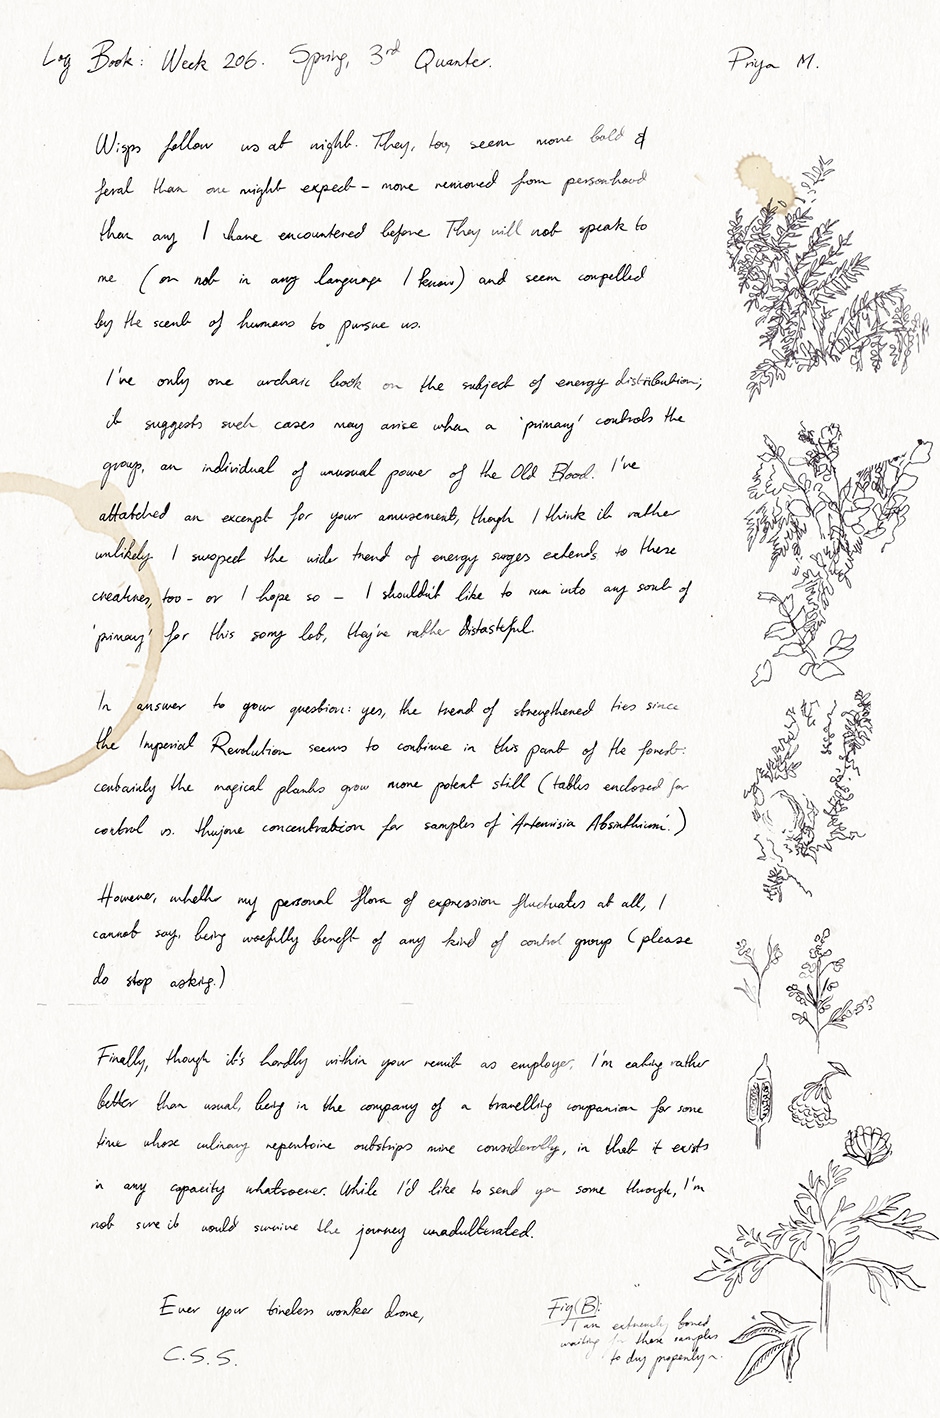 Log Book: Week 206. Spring, 3rd Quarter.
Priya M.
Wisps follow us at night. They, too, seem more bold &
feral than one might expect – more removed from personhood
than any I have encountered before. They will not speak to
me (or not in any language I know) and seem compelled
by the scent of humans to pursue us.
I've only one archaic book on the subject of energy distribution;
it suggests such cases may arise when a 'primary' controls the
group, an individual of unusual power of the Old Blood. I've
attatched an excerpt for your amusement, though I think it rather
unlikely. I suspect the wider trend of energy surges extends to these
creatures, too – or I hope so – I shouldn't like to run into any sort of
'primary' for this sorry lot, they're rather distasteful.
In answer to your question: yes, the trend of strengthened ties since
the Imperial Revolution seems to continue in this part of the forest:
certainly the magical plants grow more potent still (tables enclosed for
control vs. thujone concentration for samples of 'Artemisia Absinthium'.)
However, whether my personal flora of expression fluctuates at all, I
cannot say, being woefully bereft of any kind of control group (please
do stop asking.)
Finally, though it's hardly within your remit as employer, I'm eating rather
better than usual, being in the company of a travelling companion for some
time whose culinary repertoire outstrips mine considerably, in that it exists
in any capacity whatsoever. While I'd like to send you some through, I'm
not sure it would survive the journey unadulterated.
Ever your tireless worker drone,
C.S.S.
Fig(B):
I am extremely bored
waiting for these samples
to dry properly ~.